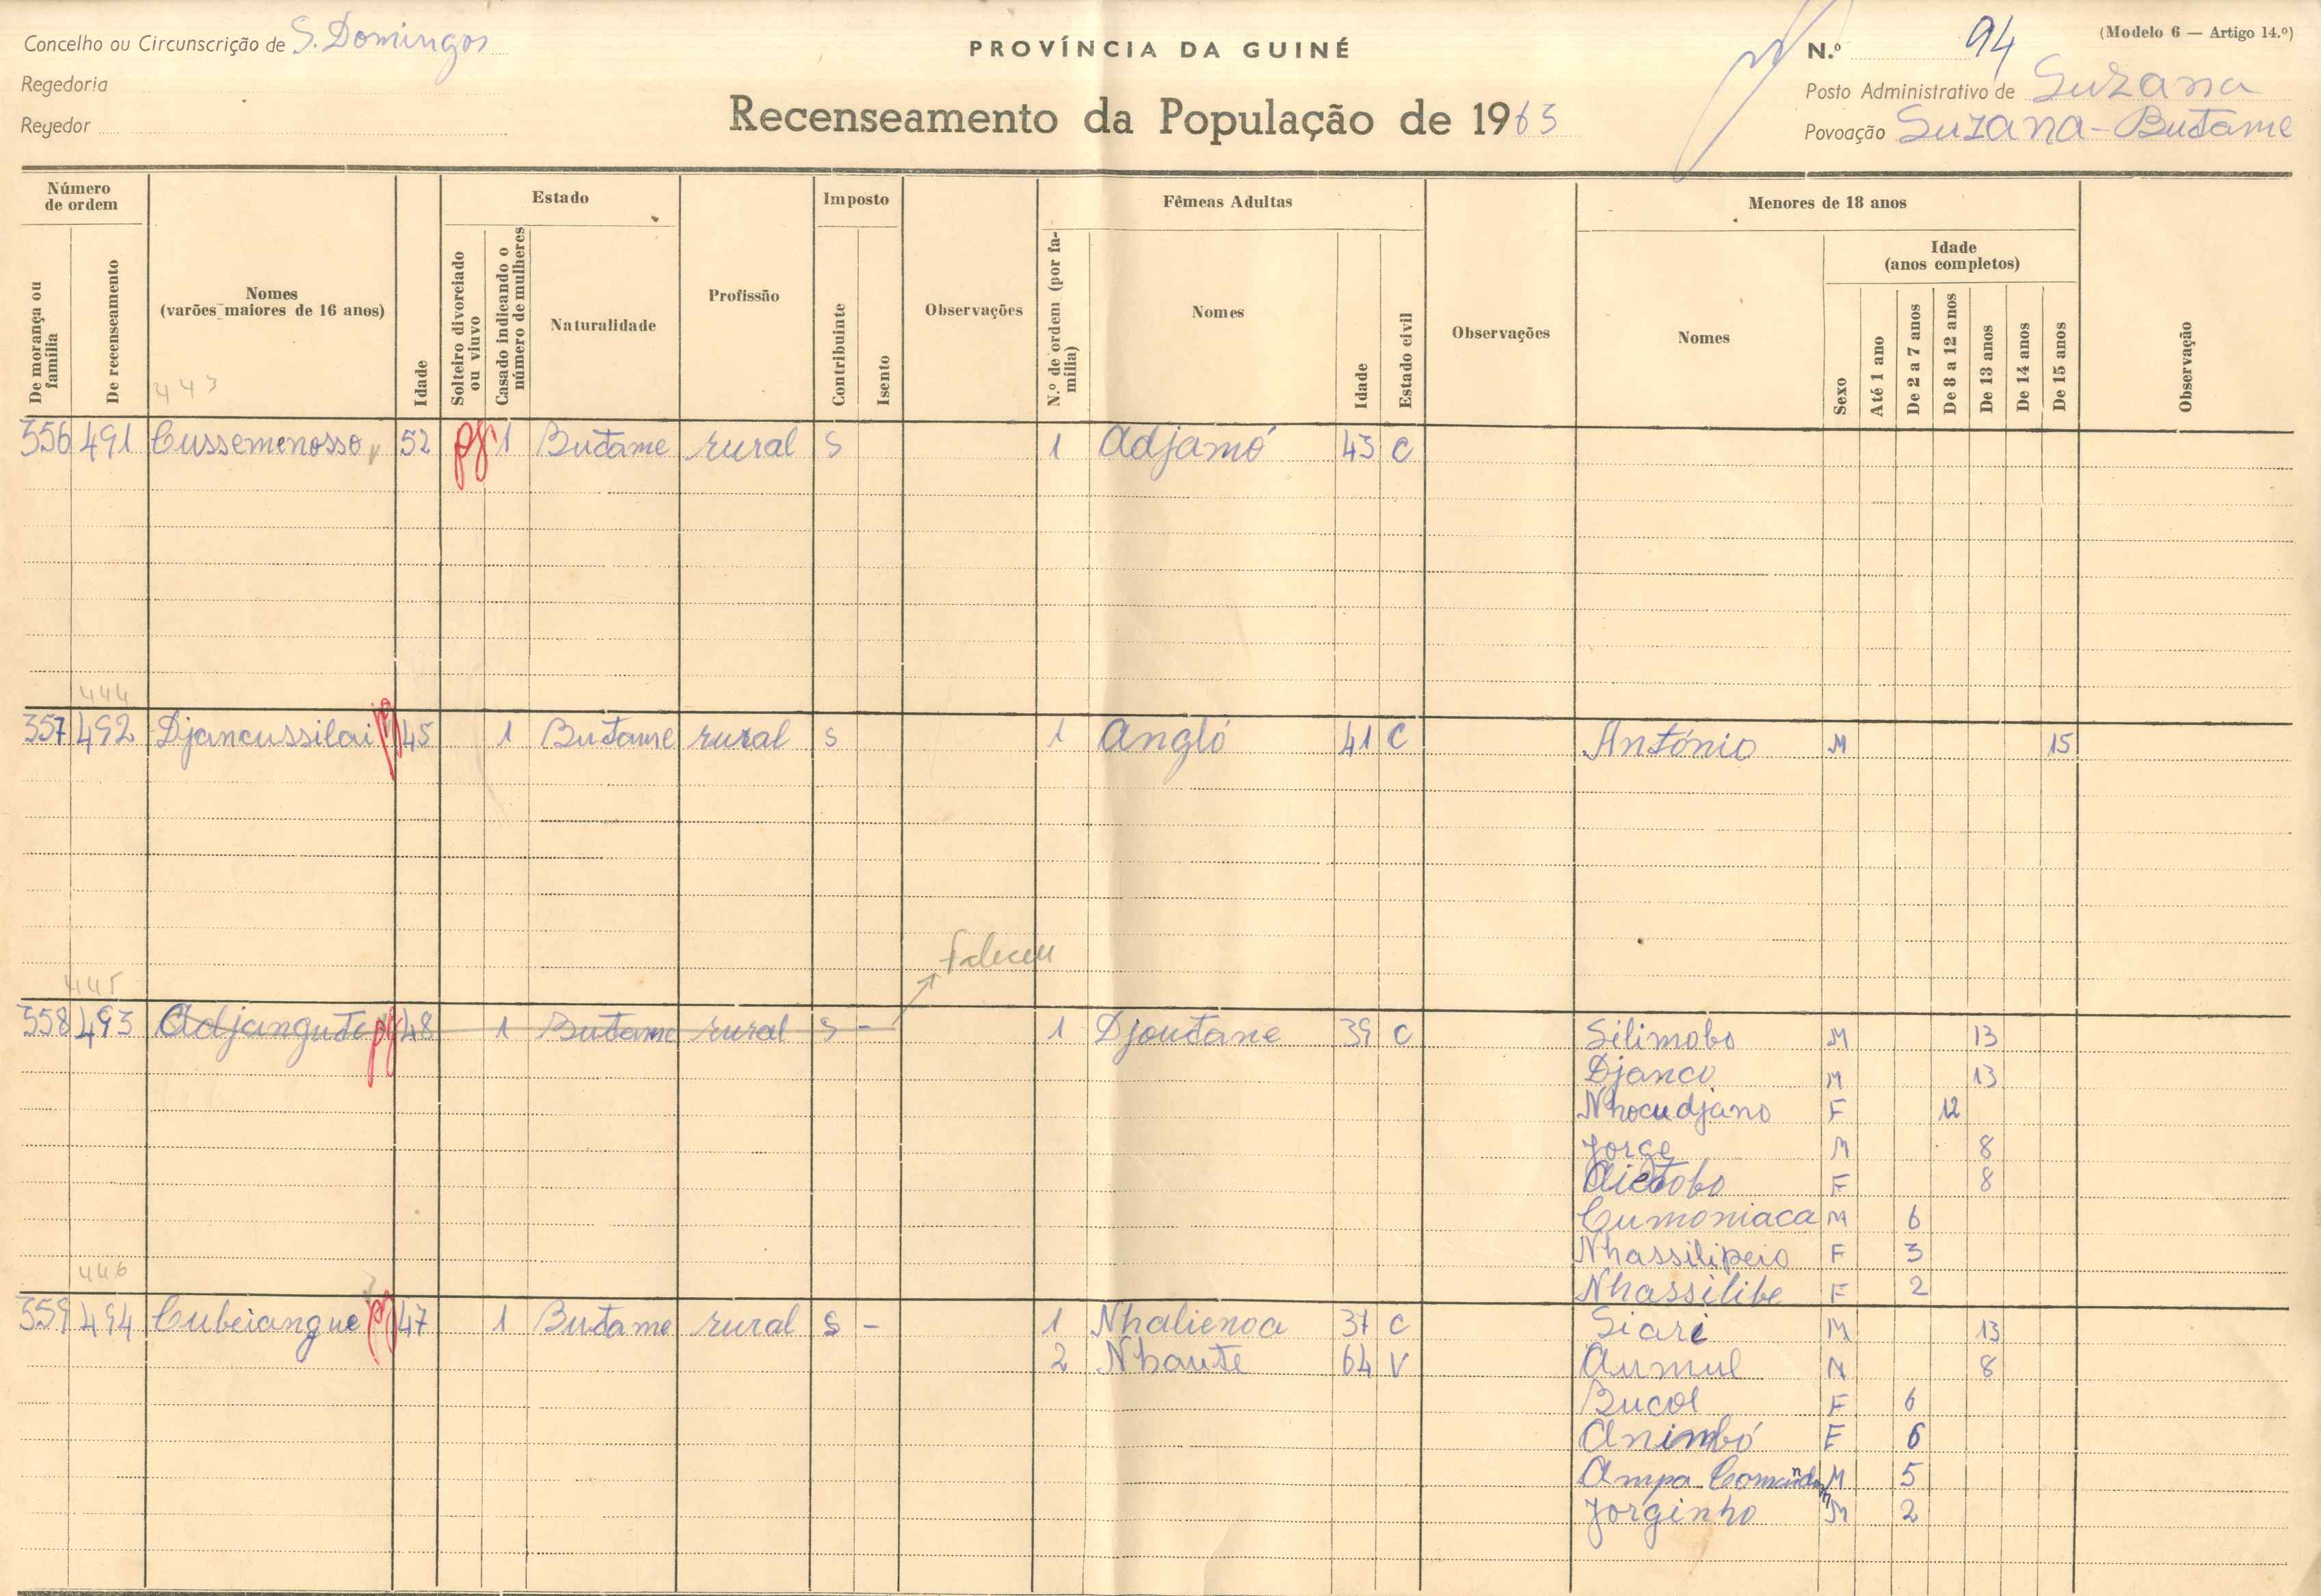 Concelho ou Circunscrição de S. Domingos
PROVÍNCIA DA GUINÉ
N.º 94
(Modelo 6 — Artigo 14.º)
Regedoria
Regedor
Recenseamento da População de 1963
Posto Administrativo de Suzana
Povoação Suzana-Butame
Número de ordem
Estado
Imposto
Fêmeas Adultas
Menores de 18 anos
De morança ou família
De recenseamento
Nomes (varões maiores de 16 anos)
Idade
Solteiro divorciado ou viuvo
Casado indicando o número de mulheres
Naturalidade
Profissão
Contribuinte
Isento
Observações
N.º de ordem (por família)
Nomes
Idade
Estado civil
Observações
Nomes
Sexo
Idade (anos completos)
Até 1 ano
De 2 a 7 anos
De 8 a 12 anos
De 13 anos
De 14 anos
De 15 anos
Observação
443
356 491 Cussemenosso 52 pg 1 Butame rural S 1 Adjamó 43 C
444
357 492 Djancussilai pg 45 1 Butame rural S 1 Angló 41 C António M 15
faleceu
445
358 493 Adjangute pg 48 1 Butame rural S - 1 Djoutane 39 C Silimobo M 13
Djanco M 13
Nhocudjano F 12
Jorge M 8
Aietobo F 8
Cumoniaca M 6
Nhassilipeio F 3
Nhassilibe F 2
446
359 494 Cubeiangue pg 47 1 Butame rural S - 1 Nhalienoa 37 C Siari M 13
2 Nhaute 64 V Aumul M 8
Bucol F 6
Animbó F 6
Ampa M 5
Jorginho M 2